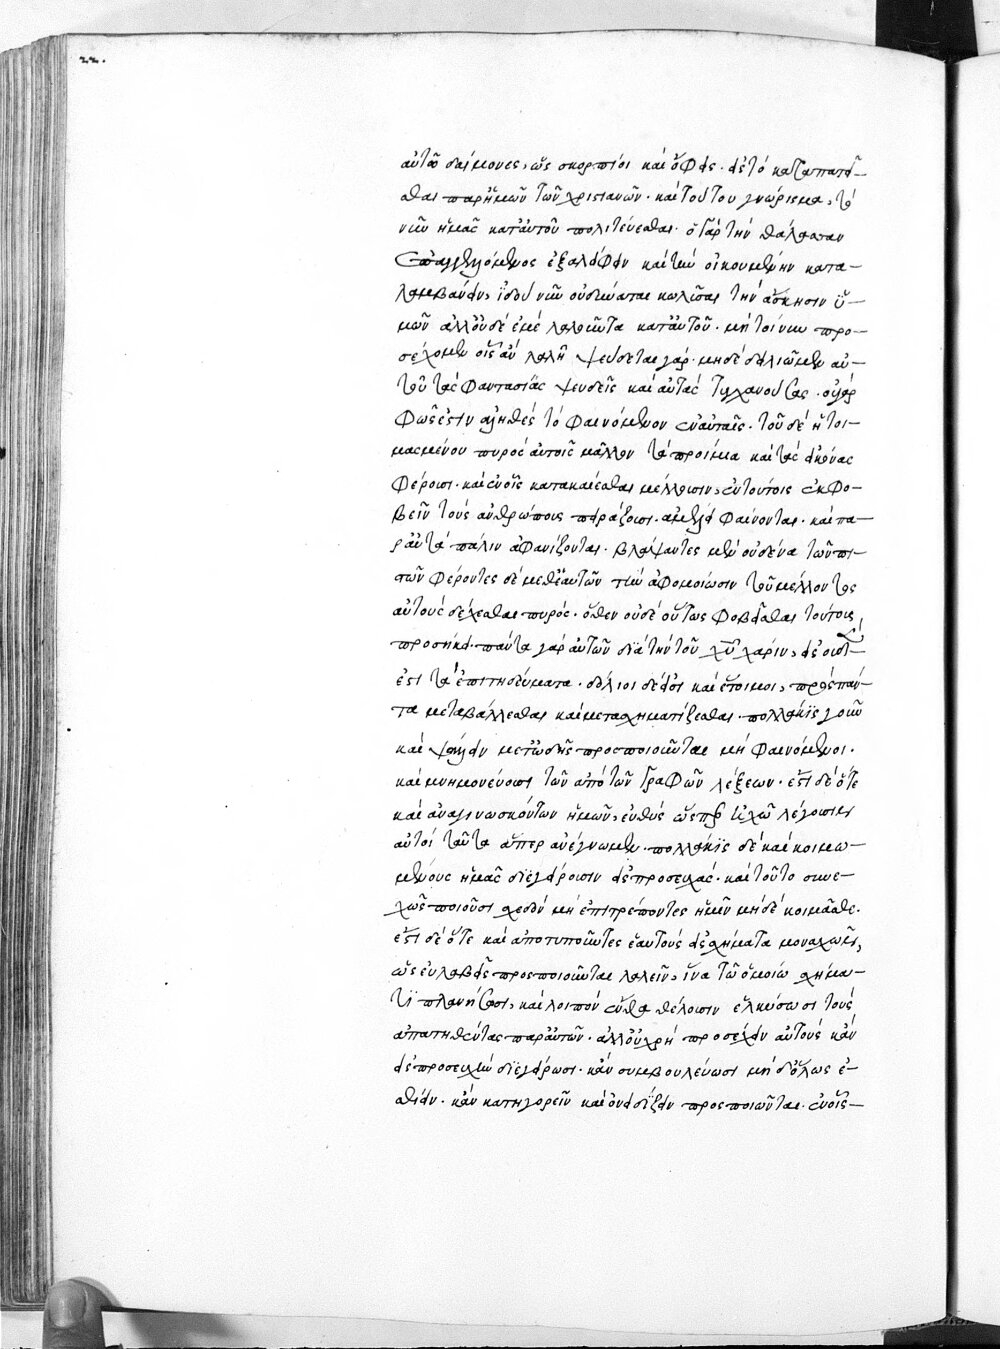 22.
αὐτοῦ δαίμονες, ὡς σκορπίοι καὶ ὄφεις. εἰς τὸ καταπατεῖ-
σθαι παρ' ἡμῶν τῶν χριστιανῶν. καὶ τούτου γνώρισμα, τὸ
νῦν ἡμᾶς κατ' αὐτοῦ πολιτεύεσθαι. ὁ γὰρ τὴν θάλασσαν
ἐπαγγελόμενος ἐξαλείφειν καὶ τὴν οἰκουμένην κατα-
λαμβάνειν, ἰδοὺ νῦν οὐ δύναται κωλῦσαι τὴν ἄσκησιν ὑ-
μῶν ἀλλ' οὐδὲ ἐμὲ λαλοῦντα κατ' αὐτοῦ. μὴ τοίνυν προ-
σέχομεν οἷς ἂν λαλῇ ψεύδεται γάρ. μηδὲ δειλιῶμεν αὐ-
τοῦ τὰς φαντασίας ψευδεῖς καὶ αὐτὰς τυγχανούσας. οὐ γὰρ
φῶς ἐστιν ἀληθὲς τὸ φαινόμενον ἐν αὐταῖς. τοῦ δὲ ἡτοι-
μασμένου πυρὸς αὐτοῖς μᾶλλον τὰ προίμια καὶ τὰς εἰκόνας
φέρουσι. καὶ ἐν οἷς κατακαίεσθαι μέλλουσιν, ἐν τούτοις ἐκφο-
βεῖν τοὺς ἀνθρώπους πειράζουσι. ἀμέλει φαίνονται. καὶ πα-
ρ' αὐτὰ πάλιν ἀφανίζονται. βλάψαντες μὲν οὐδένα τῶν πι-
στῶν φέροντες δὲ μεθ' ἑαυτῶν τὴν ἀφομοίωσιν τοῦ μέλλοντος
αὐτοὺς δέχεσθαι πυρός. ὅθεν οὐδὲ οὕτως φοβεῖσθαι τούτους
προσήκει. πάντα γὰρ αὐτῶν διὰ τὴν τοῦ χυ χάριν, εἰς οὐδέν
ἐστι τὰ ἐπιτηδεύματα. δόλιοι δέ εἰσι καὶ ἕτοιμοι, πρὸς πάν-
τα μεταβάλλεσθαι καὶ μετασχηματίζεσθαι. πολλάκις γοῦν
καὶ ψάλλειν μετ' ᾠδῆς προσποιοῦνται μὴ φαινόμενοι.
καὶ μνημονεύουσι τῶν ἀπὸ τῶν γραφῶν λέξεων. ἔστι δὲ ὅτε
καὶ ἀναγινωσκόντων ἡμῶν, εὐθὺς ὥσπερ ἠχὼ λέγουσιν
αὐτοὶ ταῦτα ἅπερ ἀνέγνωμεν. πολλάκις δὲ καὶ κοιμω-
μένους ἡμᾶς διεγείρουσιν εἰς προσευχάς. καὶ τοῦτο συνε-
χῶς ποιοῦσι σχεδὸν μὴ ἐπιτρέποντες ἡμῖν μηδὲ κοιμᾶσθαι.
ἔστι δὲ ὅτε καὶ ἀποτυποῦντες ἑαυτοὺς εἰς σχήματα μοναχῶν,
ὡς εὐλαβεῖς προσποιοῦνται λαλεῖν, ἵνα τῷ ὁμοίῳ σχήμα-
τι πλανήσωσι, καὶ λοιπὸν ἔνθα θέλουσιν ἑλκύσωσι τοὺς
ἀπατηθέντας παρ' αὐτῶν. ἀλλ' οὐ χρὴ προσέχειν αὐτοὺς κἂν
εἰς προσευχὴν διεγείρωσι. κἂν συμβουλεύωσι μὴ δ' ὅλως ἐ-
σθίειν. κἂν κατηγορεῖν καὶ ὀνειδίζειν προσποιῶνται. ἐν οἷς-